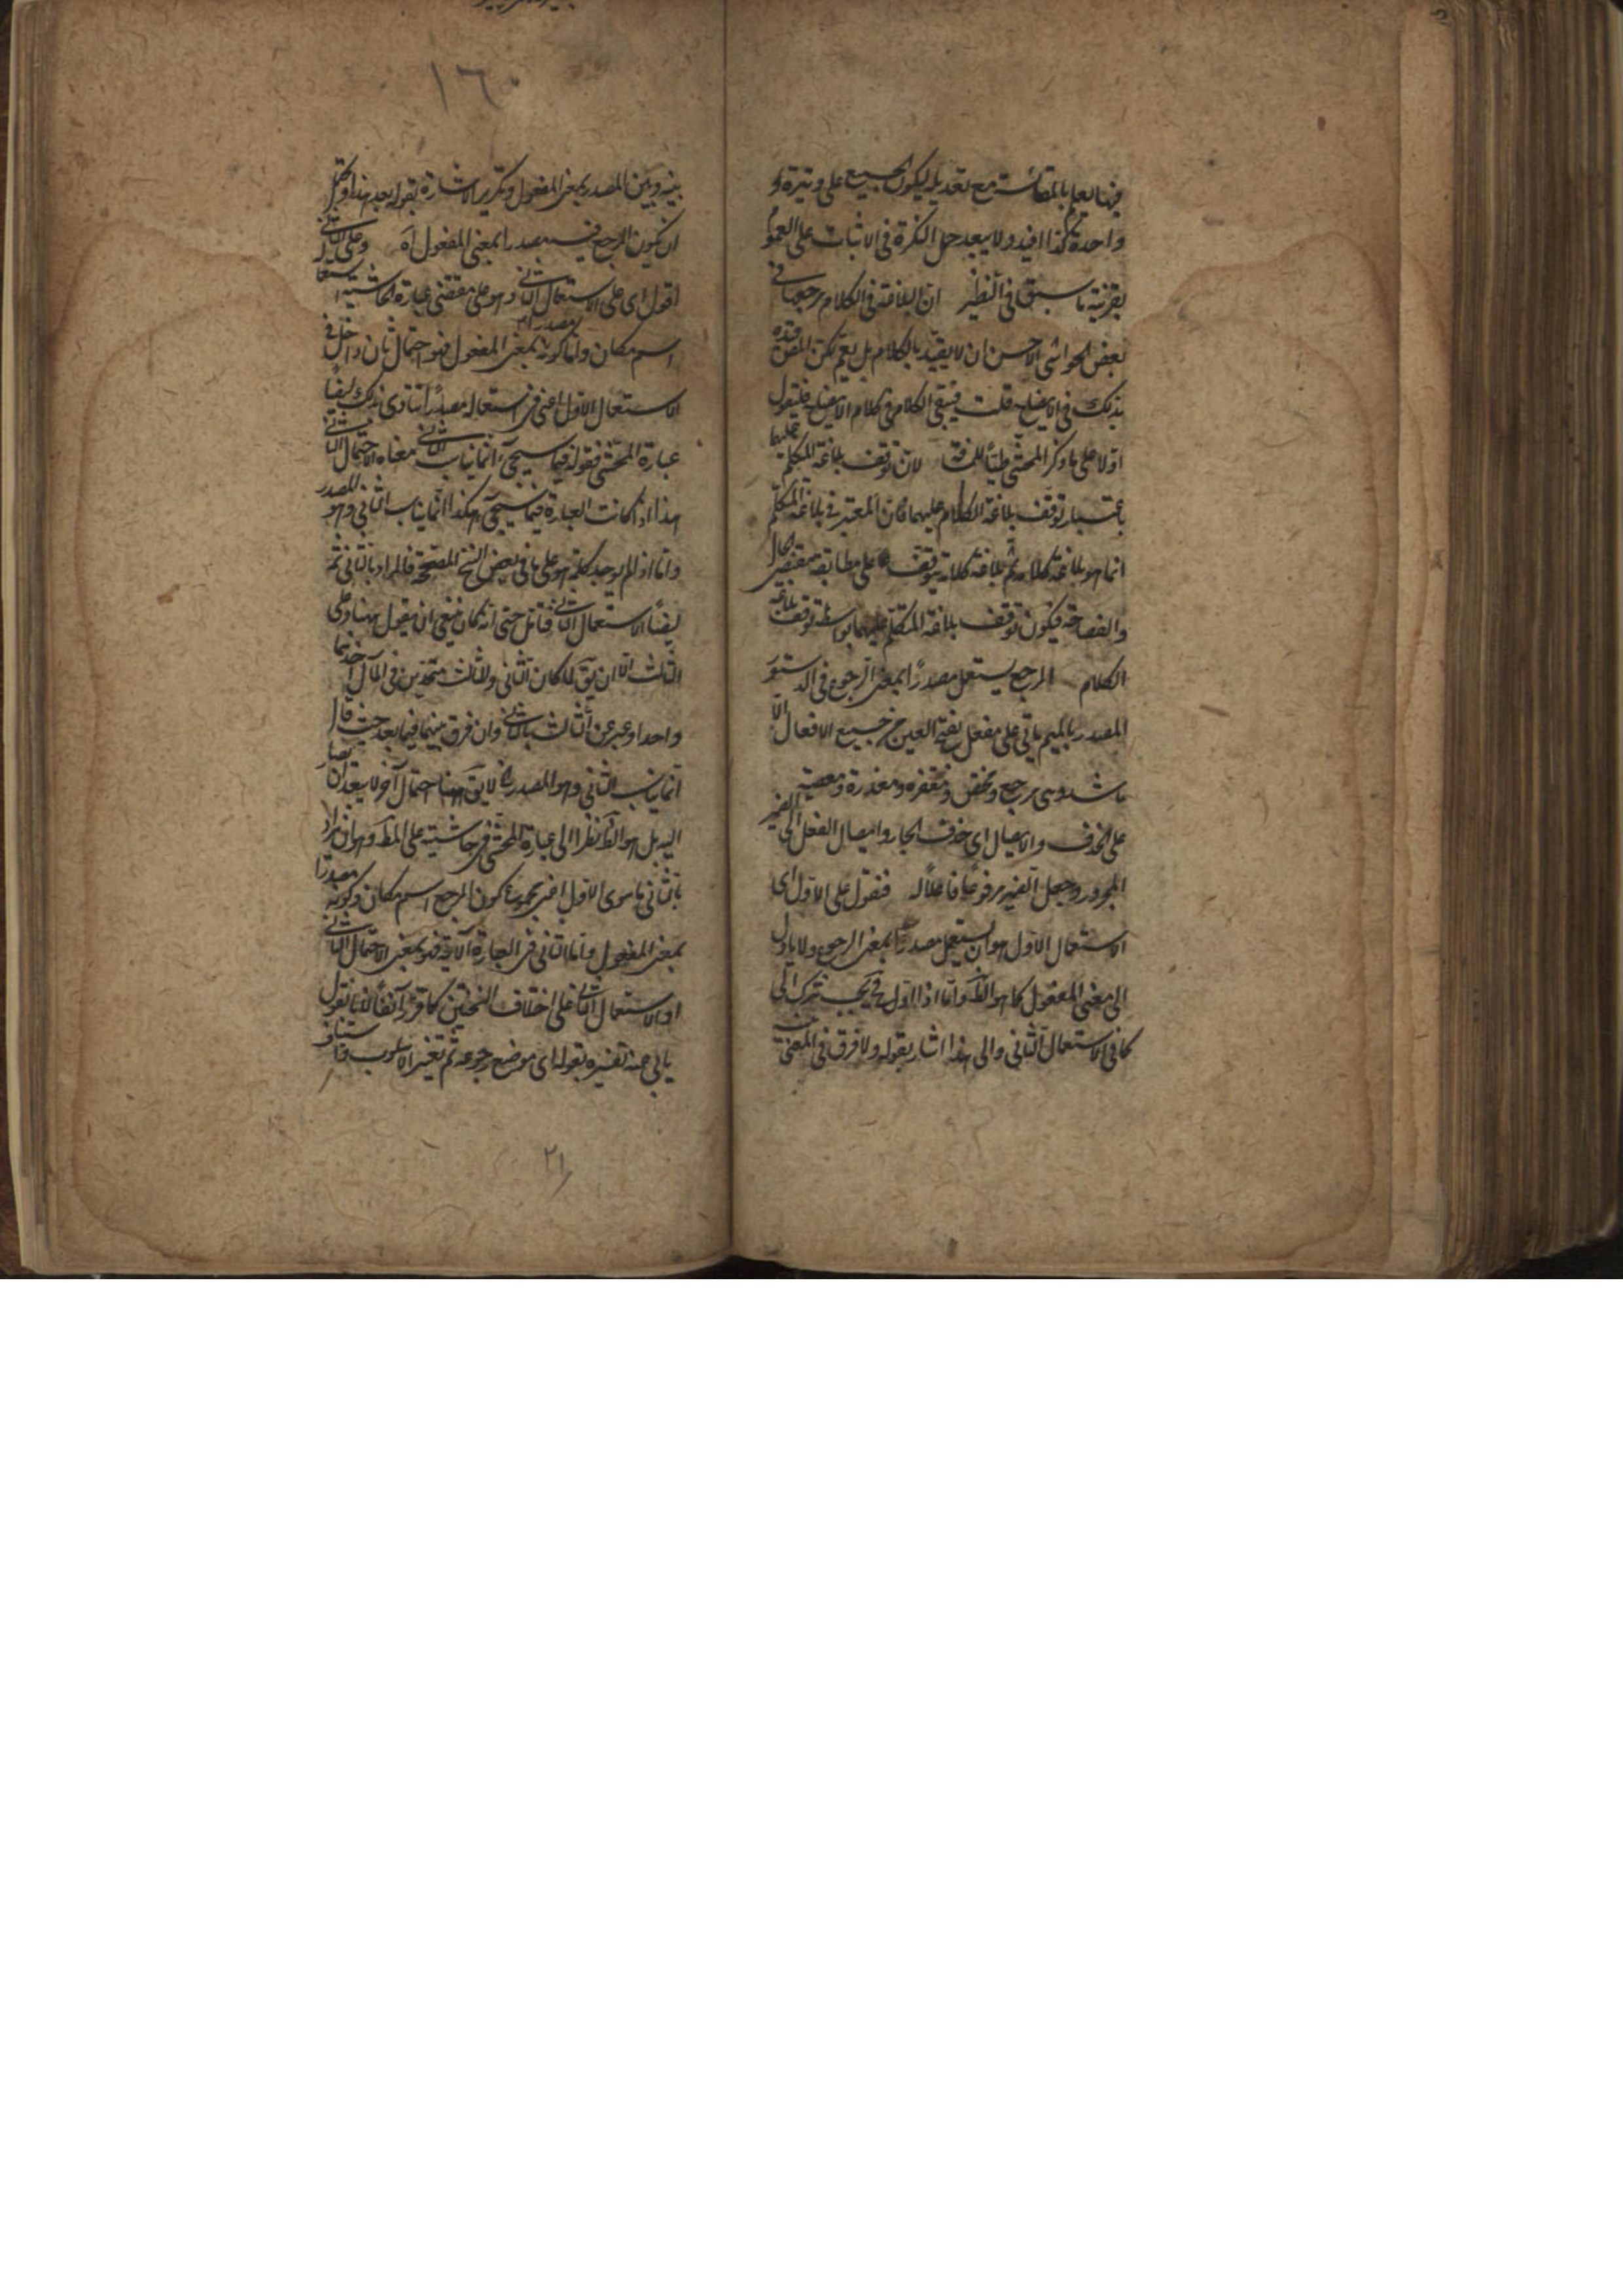 فيها يعلم بالمقائسة مع تعديل ليكون الجميع على وتيرة
واحدة كذا افيد ولا يبعد حمل النكرة فى الاثبات على العموم
بقرينة ما سبق فى النظير ان البلاغة فى الكلام مرجعها فى
بعض الحواشى الاحسن ان لا يقيد بالكلام بل يعم لكن المص قيده
بذلك فى الايضاح قلت فيبقى الكلام فى كلام الايضاح فنقول
اولا على ما ذكر المحشى طيا للمسافة لان توقف بلاغة المتكلم عليها
باعتبار توقف بلاغة الكلام عليهما فان المعتبر فى بلاغة المتكلم
انما هو بلاغة كلامه ثم بلاغة كلامه يتوقف على مطابقة مقتضى الحال
والفصاحة فيكون توقف بلاغة المتكلم عليهما بواسطة توقف بلاغة
الكلام المرجع يستعمل مصدرًا بمعنى الرجوع فى الدستور
المصدر بالميم ياتى على مفعل بفتح العين من جميع الافعال الا
ما شذ وهى مرجع ومغفرة ومعذرة ومعصية
على الحذف والايصال اى حذف الجار وايصال الفعل الى الضمير
المجرور وجعل الضمير مرفوعًا فاعلًا له فنقول على الاول اى
الاستعمال الاول هو ان يستعمل مصدرًا بمعنى الرجوع ولا ياول
الى معنى المفعول كما هو الظ واما اذا اول فح يجب ترك الى
كما فى الاستعمال الثانى والى هذا اشار بقوله ولا فرق فى المعنى
١٦٠
بينه وبين المصدر بمعنى المفعول وتكرير الاشارة بقوله بعد هذا ويحتمل
ان يكون المرجع فيه مصدرا بمعنى المفعول آه وعلى الثانى
اقول اى على الاستعمال الثانى وهو على مقتضى عبارة الحاشية استعماله
اسم مكان واما كونه مصدرا بمعنى المفعول فهو احتمال ثان داخل فى
الاستعمال الاول اعنى فى استعماله مصدرًا تنادى بذلك ايضًا
عبارة المحشى فقوله فيما سيجئ انما يناسب الثانى معناه الاحتمال الثانى
هذا اذا كانت العبارة فيما سيجئ هكذا انما يناسب الثانى وهو المصدر
واما اذا لم يوجد كلمة هو على ما فى بعض النسخ المصححة فالمراد بالثانى ثمه
ايضًا الاستعمال الثانى فتامل حتى انه كان ينبغى ان يقول ههنا وعلى
الثالث الا ان يق لما كان الثانى والثالث متحدين فى المآل اخذهما
واحدا وعبر عن الثالث بالثانى وان فرق بينهما فيما بعد حيث قال
انما يناسب الثانى وهو المصدر لا يق ههنا احتمال آخر لا يبعد ان يصار
اليه بل هو الظ نظرا الى عبارة المحشى فى حاشيته على المط وهو ان يراد
بالثانى ما سوى الاول اعنى مجموع كون المرجع اسم مكان وكونه مصدرًا
بمعنى المفعول واما الثانى فى العبارة الآتية فهو بمعنى الاحتمال الثانى
او الاستعمال الثانى على اختلاف النسختين كما قرر آنفًا لانا نقول
يابى عنه تفسيره بقوله اى موضع رجوعه ثم تغيير الاسلوب
٢١